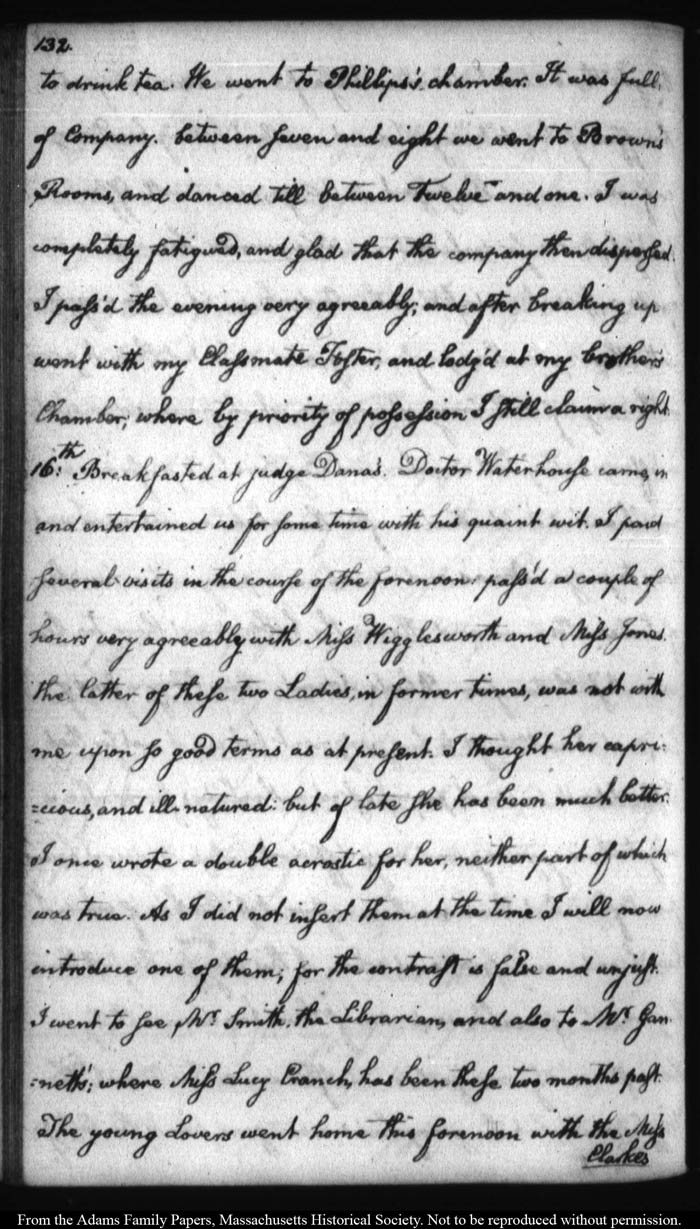 132.
to drink tea. We went to Phillips's chamber. It was full
of Company. between seven and eight we went to Brown's
Rooms, and danced till between Twelve and one. I was
completely fatigued, and glad that the company then dispersed.
I pass'd the evening very agreeably; and after breaking up
went with my Classmate Foster, and lodg'd at my brother's
Chamber; where by priority of possession I still claim a right.
16:th Breakfasted at judge Dana's. Doctor Waterhouse came, in
and entertained us for some time with his quaint wit. I paid
several visits in the course of the forenoon: pass'd a couple of
hours very agreeably with Miss Wigglesworth and Miss Jones.
the latter of these two Ladies, in former times, was not with
me upon so good terms as at present. I thought her capri:
=cious, and ill-natured: but of late she has been much better.
I once wrote a double acrostic for her, neither part of which
was true. As I did not insert them at the time I will now
introduce one of them; for the contrast is false and unjust.
I went to see Mr. Smith, the Librarian, and also to Mr. Gan
=nett's; where Miss Lucy Cranch, has been these two months past.
The young Lovers went home this forenoon with the Miss
Clarkes
From the Adams Family Papers, Massachusetts Historical Society. Not to be reproduced without permission